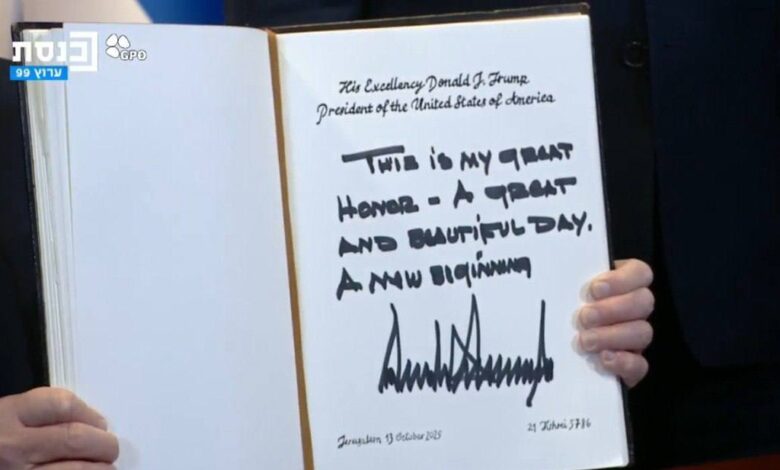 כנסת
ערוץ 99
GPO
His Excellency Donald J. Trump
President of the United States of America
THIS IS MY GREAT
HONOR - A GREAT
AND BEAUTIFUL DAY.
A NEW BIGINNING
Jerusalem 13 October 2025
21 Tishrei 5786